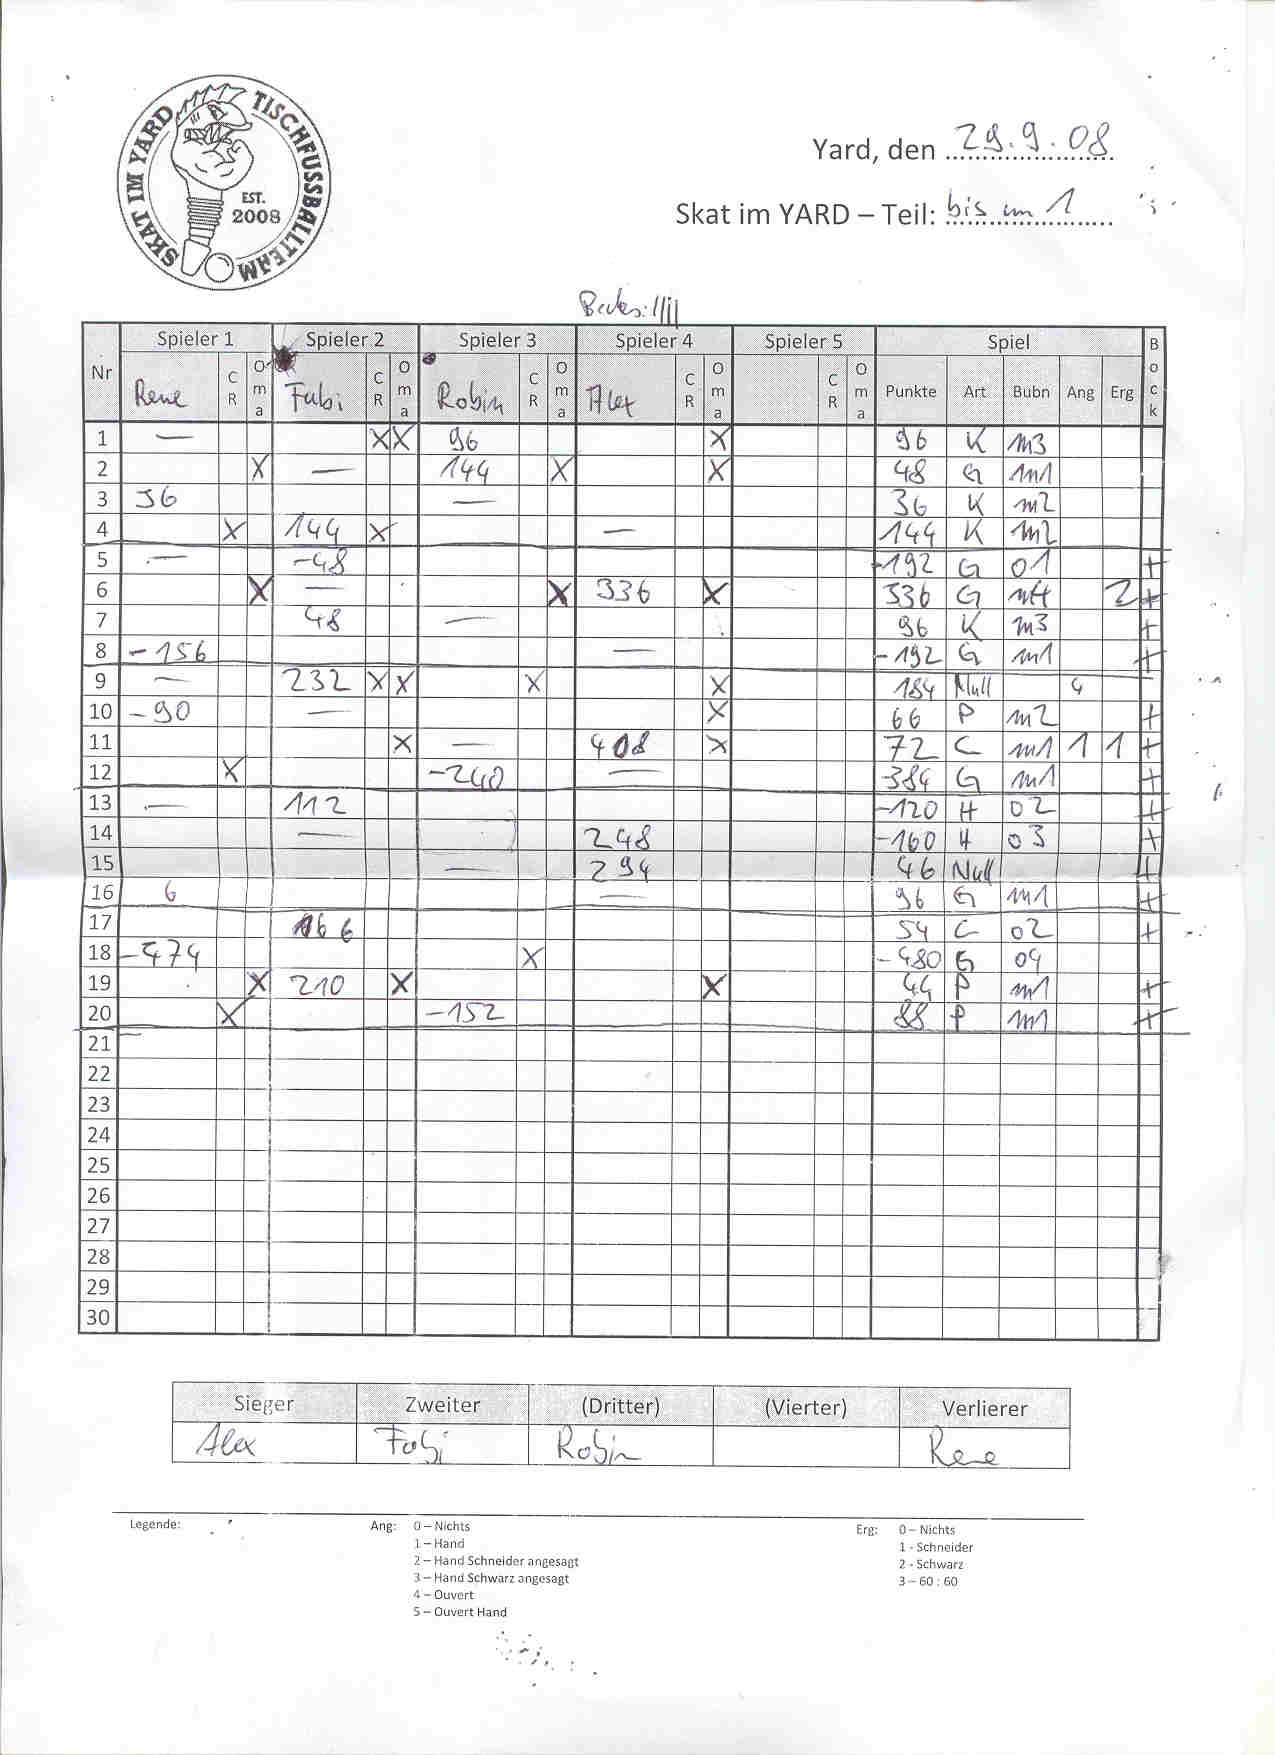 SKAT IM YARD TISCHFUSSBALLTEAM
EST.
2008
Yard, den 29.9.08
Skat im YARD – Teil: bis im 1
Becks: |||||
Nr Spieler 1 Spieler 2 Spieler 3 Spieler 4 Spieler 5 Spiel Bock
Rene CR Oma Fabi CR Oma Robin CR Oma Alex CR Oma CR Oma Punkte Art Bubn Ang Erg
1 — X X 96 X 96 K m3
2 X — 144 X X 48 G m1
3 36 — 36 K m2
4 X 144 X — 144 K m2
5 — -48 -192 G 01 +
6 X — X 336 X 336 G m4 2 +
7 48 — 96 K m3 +
8 -156 — -192 G m1 +
9 — 232 X X X X 184 Null 4
10 -90 — X 66 P m2 +
11 X — 408 X 72 C m1 1 1 +
12 X -240 — -384 G m1 +
13 — 112 -120 H 02 +
14 — 248 -160 H 03 +
15 — 294 46 Null +
16 6 — 96 G m1 +
17 166 54 C 02 +
18 -474 X -480 G 04
19 X 210 X X 44 P m1 +
20 X -152 88 P m1 +
21 —
22
23
24
25
26
27
28
29
30
Sieger Zweiter (Dritter) (Vierter) Verlierer
Alex Fabi Robin Rene
Legende: Ang: 0 – Nichts Erg: 0 – Nichts
1 – Hand 1 - Schneider
2 – Hand Schneider angesagt 2 - Schwarz
3 – Hand Schwarz angesagt 3 – 60 : 60
4 – Ouvert
5 – Ouvert Hand